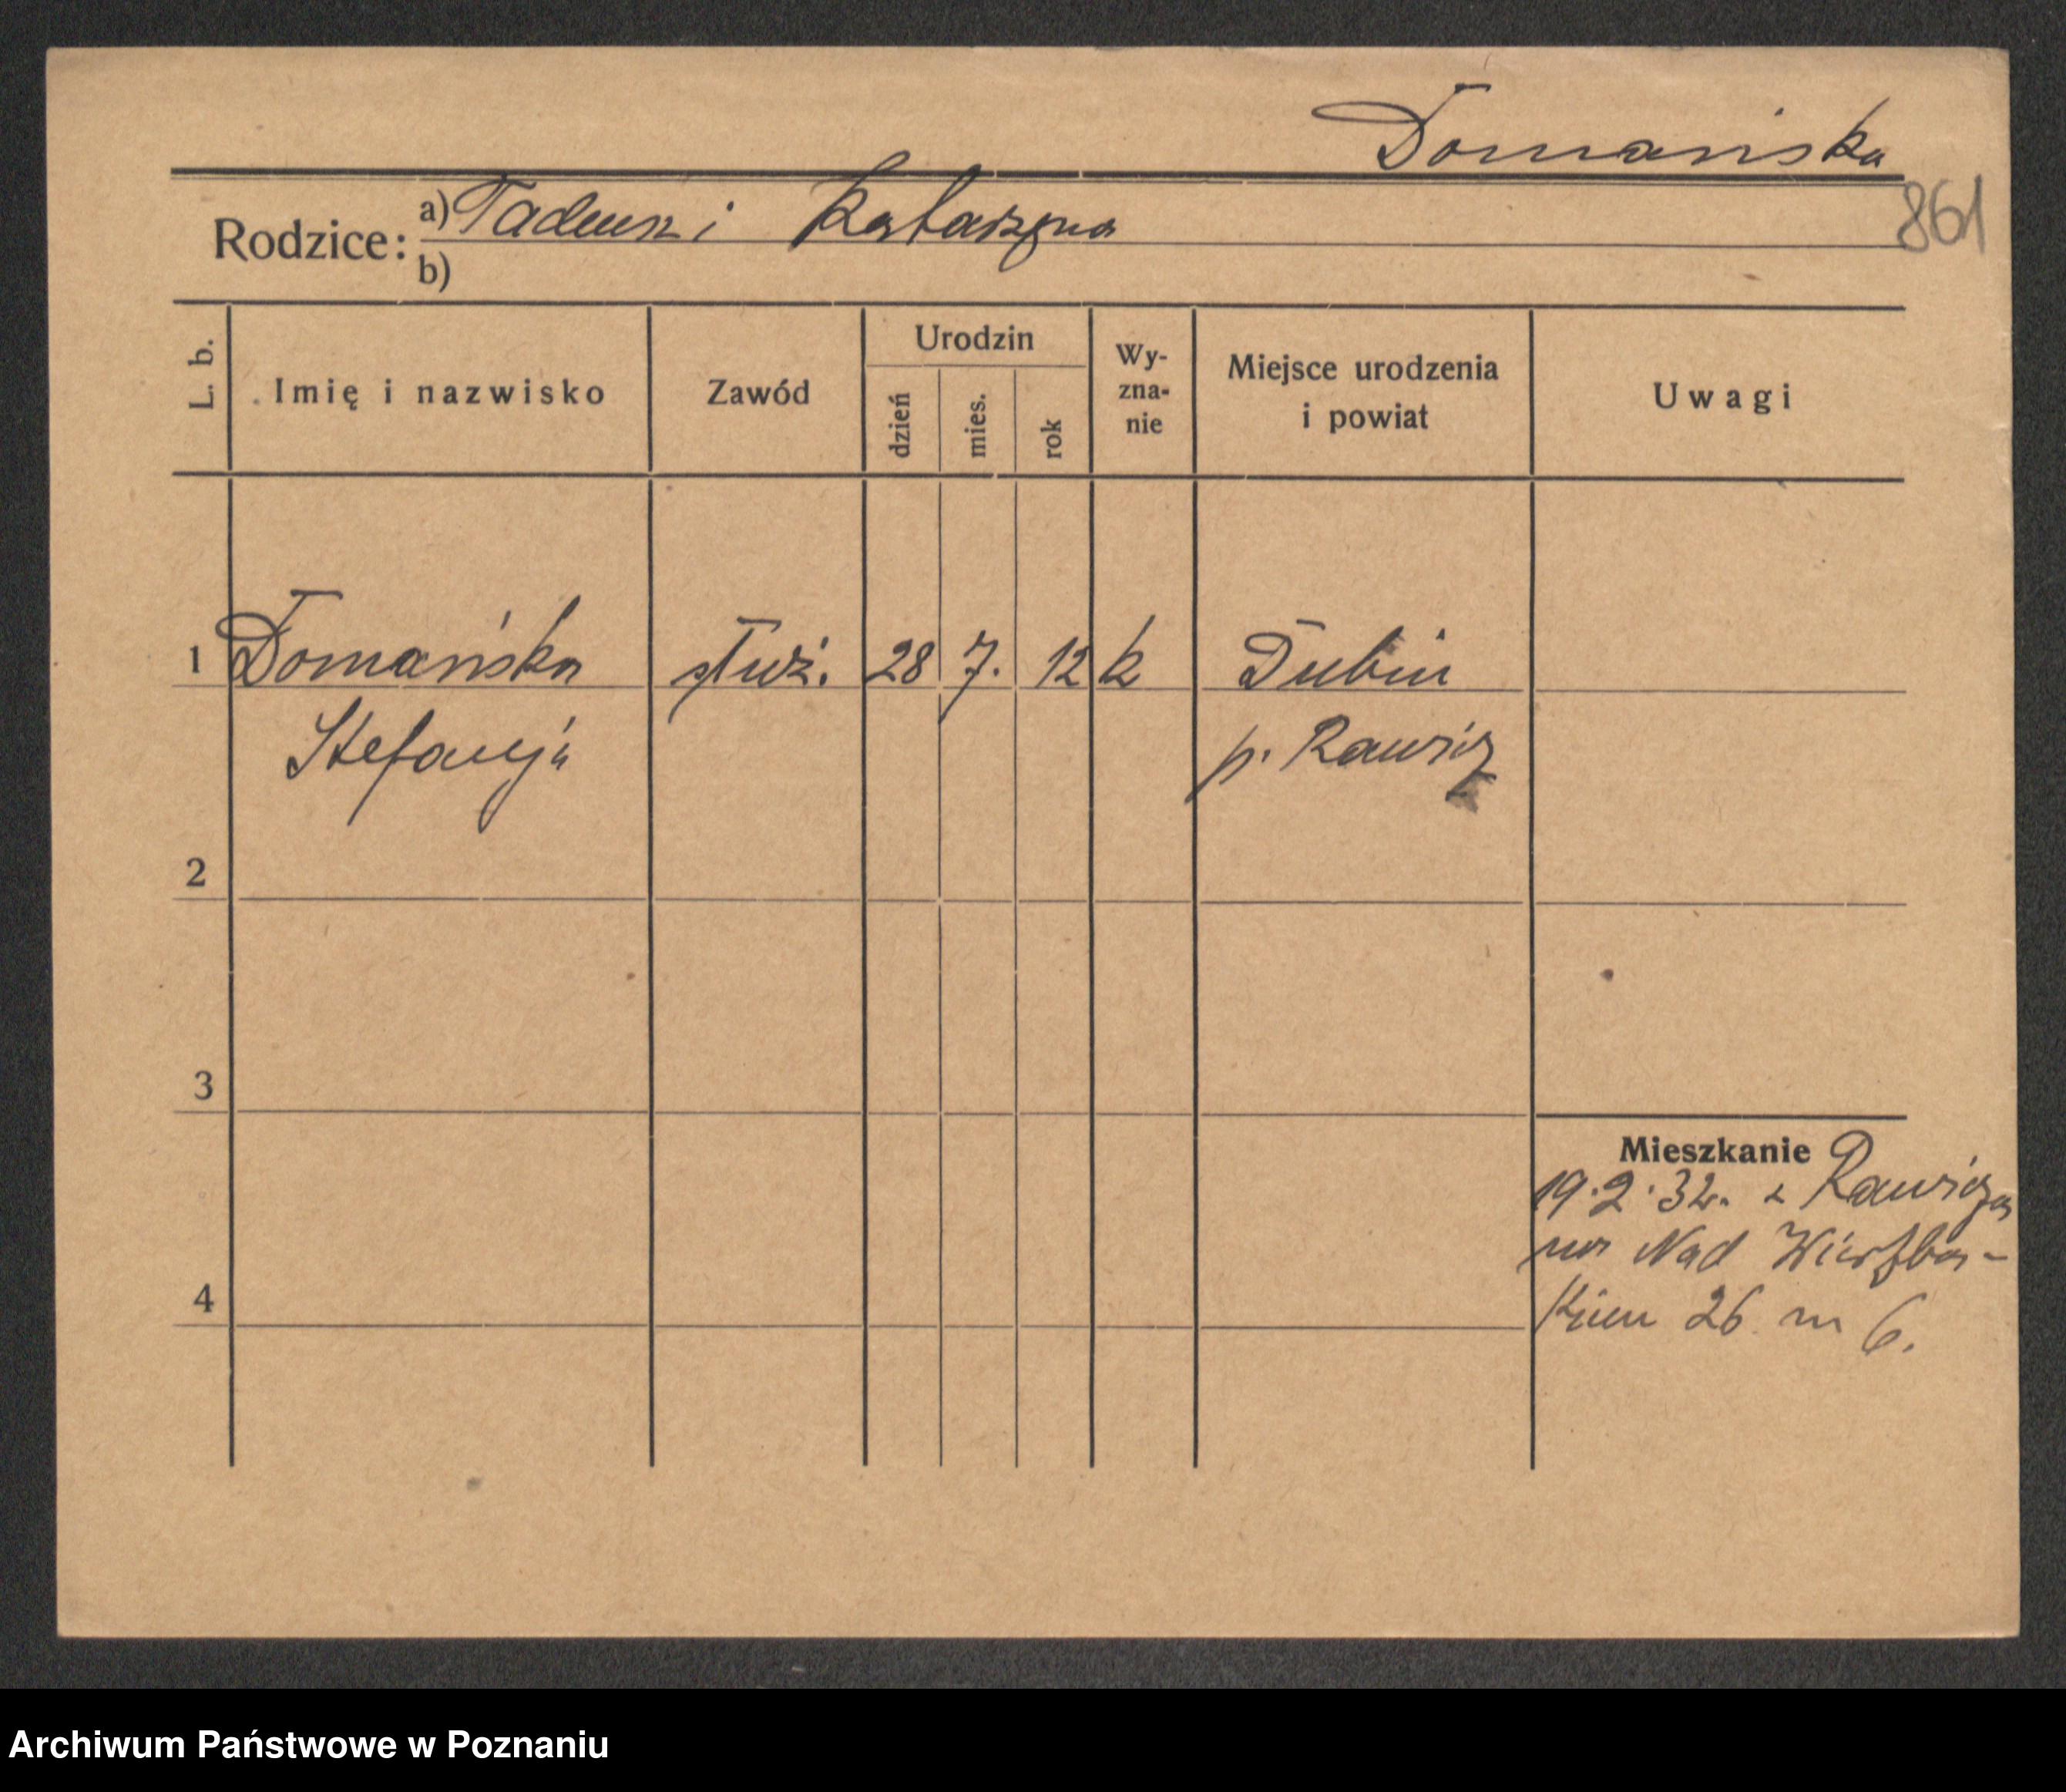 Domańska
861
Rodzice: a) Tadeusz i Katarzyna
b)
L. b. Imię i nazwisko Zawód Urodzin dzień mies. rok Wy-zna-nie Miejsce urodzenia i powiat Uwagi
1 Domańska służ. 28 7. 12 k Dubin
Stefanja p. Rawicz
2
3
Mieszkanie
19.2.32. z Rawicza
na Nad Wierzba-
4
kiem 26 m 6.
Archiwum Państwowe w Poznaniu